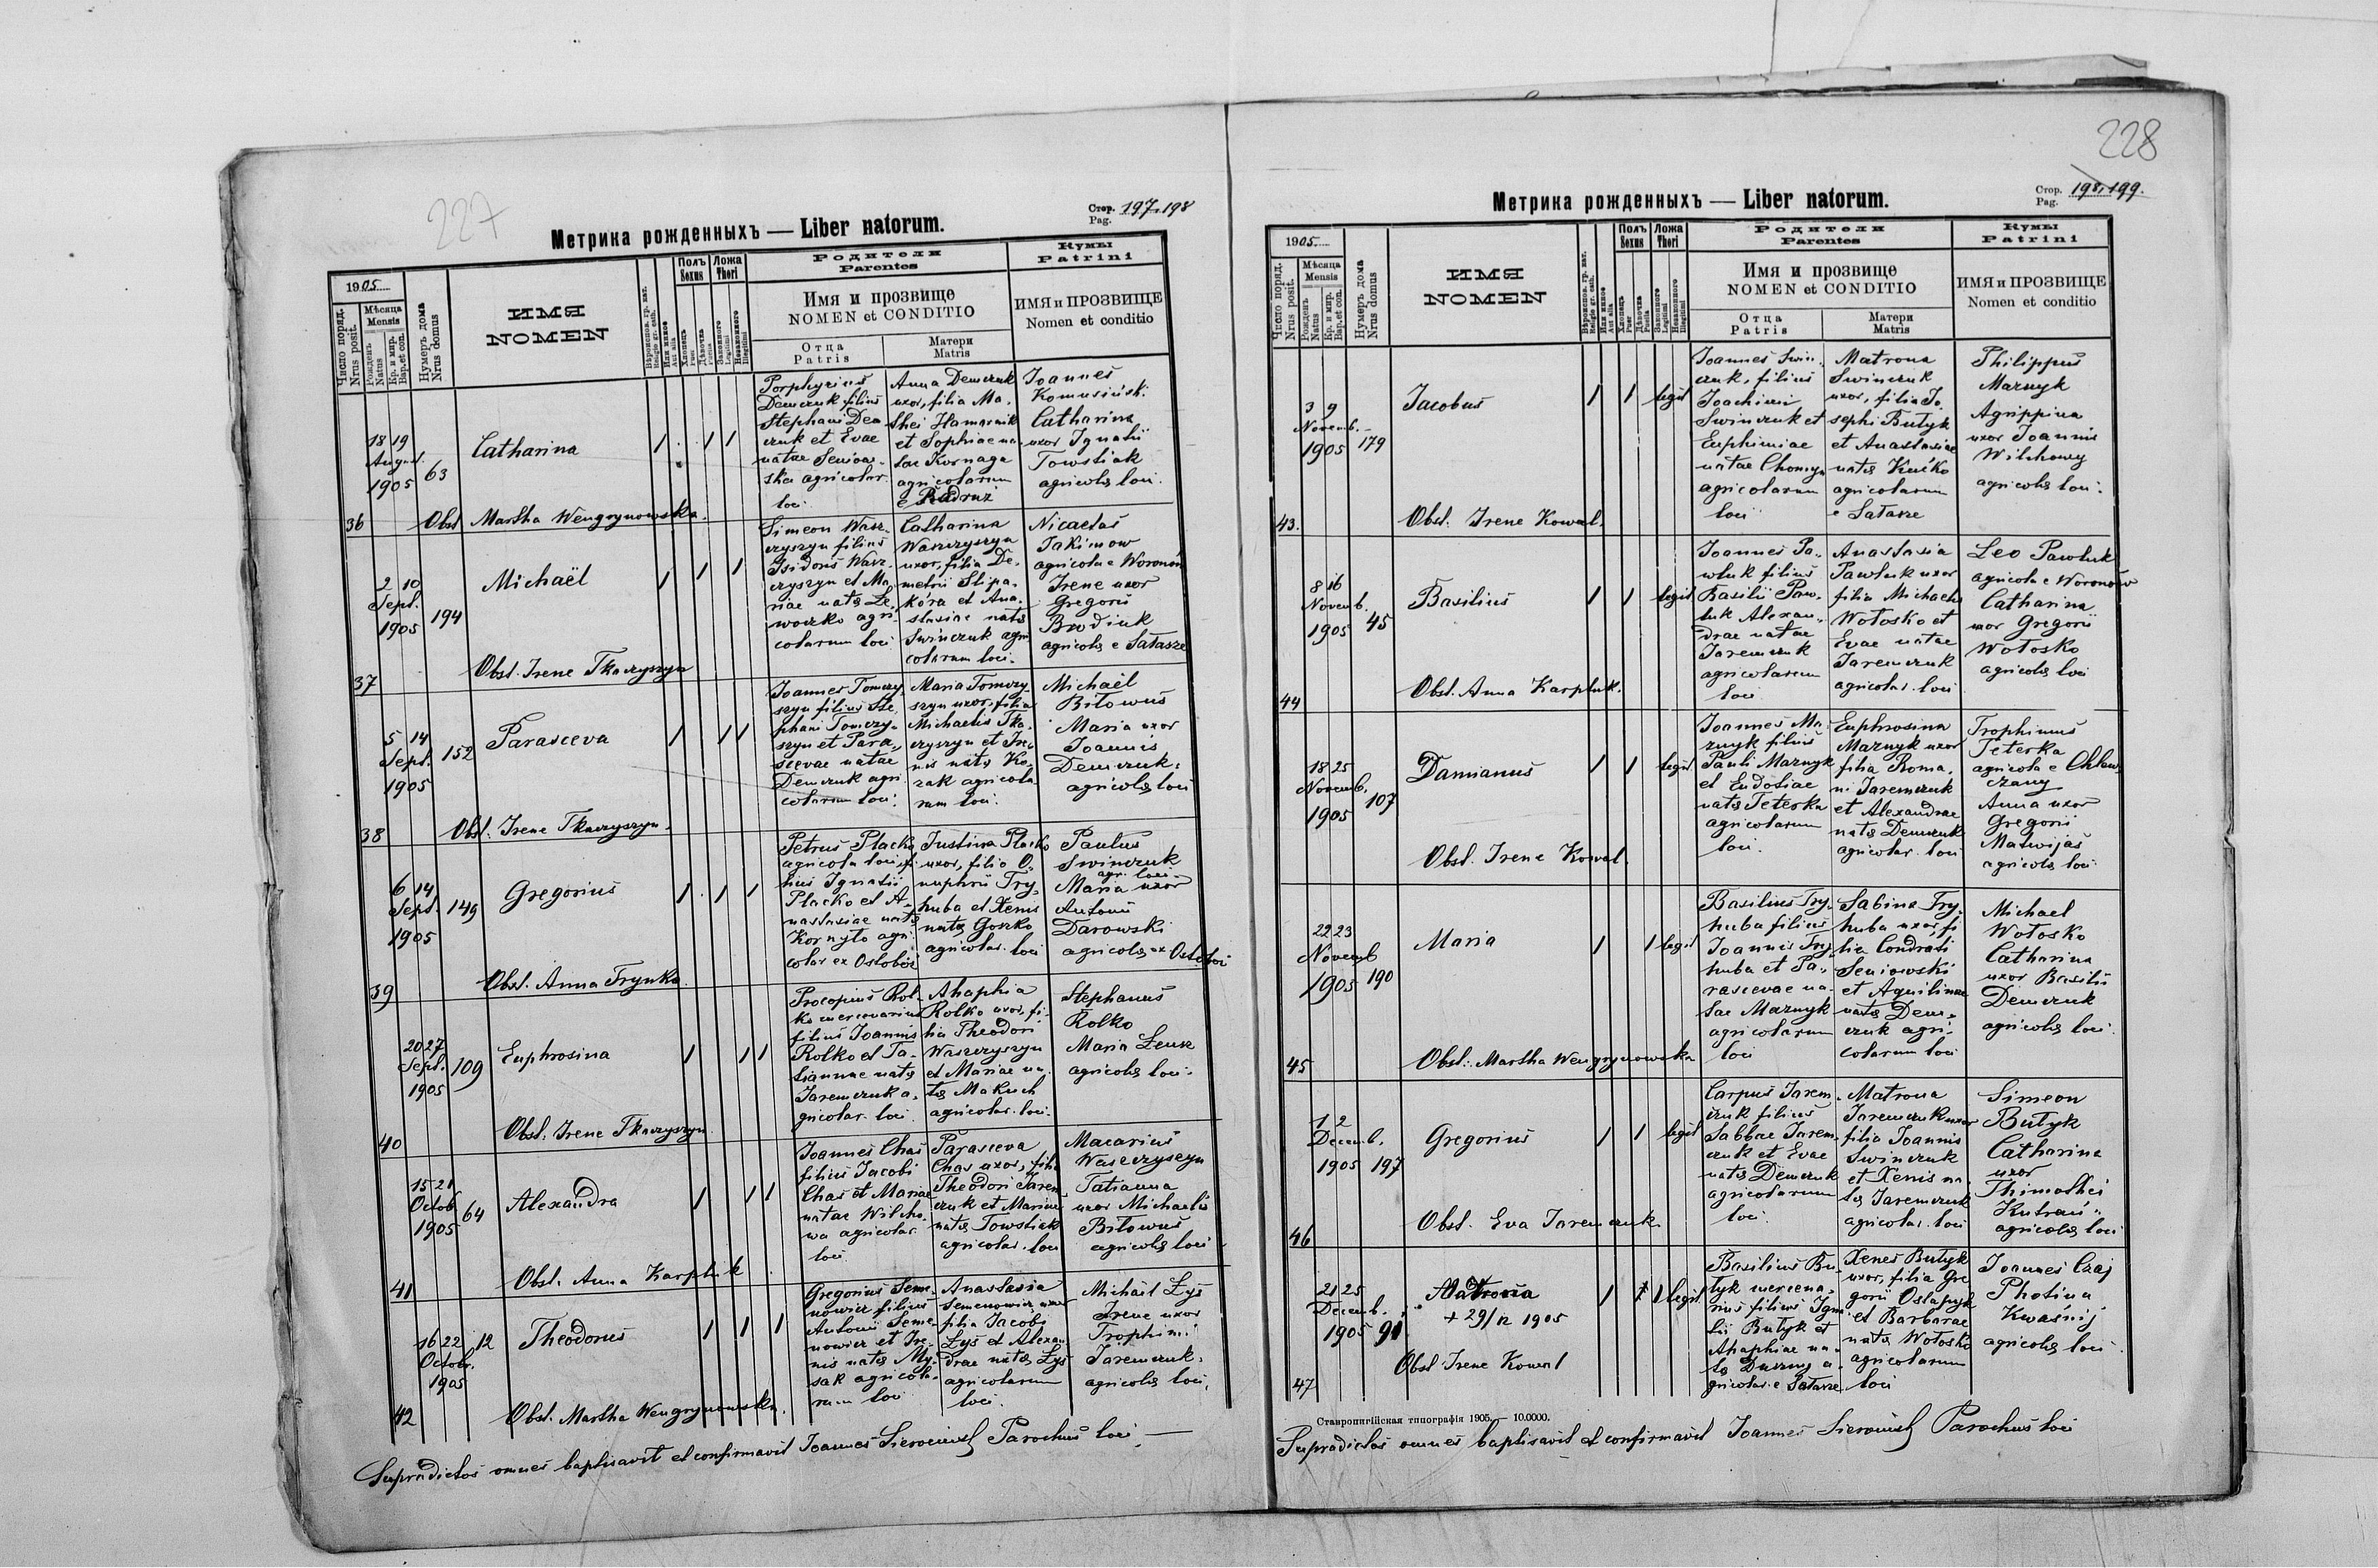 227
Метрика рожденныхъ — Liber natorum.
Стор. Pag. 197.198
1905
Число поряд. Nrus posit.
Мѣсяца Mensis
Рожденъ Natus
Кр. и мир. Bap. et con.
Нумеръ дома Nrus domus
ИМЯ
NOMEN
Полъ Sexus
Ложа Thori
Родители
Parentes
Имя и прозвище
NOMEN et CONDITIO
Отца Patris
Матери Matris
Кумы
Patrini
ИМЯ и ПРОЗВИЩЕ
Nomen et conditio
36
18 19
August.
1905
63
Catharina
Obst. Martha Wengrynowska.
Porphyrius
Demczuk filius
Stephani Dem
czuk et Evae
natae Seniow-
ska agricolar.
loci
Anna Demczuk
uxor, filia Ma-
thei Hamarnik
et Sophiae na-
tae Kornaga
agricolarum
e Radruż
Joannes
Komusiński.
Catharina
uxor Ignatii
Towstiak
agricolae loci.
37
2 10
Sept.
1905
194
Michaël
Obst. Irene Tkaczyszyn
Simeon Wasz-
czyszyn filius
Isidori Wasz-
czyszyn et Ma-
riae natae Le-
woczko agri-
colarum loci
Catharina
Waszczyszyn
uxor, filia De-
metrii Slipa-
kóra et Ana-
stasiae natae
Swinczuk agri
colarum loci.
Nicaetas
Jakimow
agricola e Woronów
Irene uxor
Gregorii
Brodiuk
agricolae e Sałasze
38
5 14
Sept.
1905
152
Parasceva
Obst. Irene Tkaczyszyn.
Joannes Tomczy-
szyn filius Ste-
phani Tomczy-
szyn et Para-
scevae natae
Demczuk agri
colarum loci.
Maria Tomczy-
szyn uxor, filia
Michaelis Tka-
czyszyn et Ire-
nis natae Ko-
zak agricola
rum loci.
Michaël
Biłowus
Maria uxor
Joannis
Demczuk.
agricolae loci
39
6 14
Sept.
1905
149
Gregorius
Obst. Anna Frynko.
Petrus Placko
agricola loci, fi-
lius Ignatii
Placko et A-
nastasiae natae
Kornyło agri-
colar ex Osłobói
Justina Placko
uxor, filia O-
nuphrii Try-
huba et Xenis
natae Goszko
agricolar. loci
Paulus
Swinczuk
agr. loci
Maria uxor
Antonii
Darowski
agricolae ex Osłobói
40
20 27
Sept.
1905
109
Euphrosina
Obst. Irene Tkaczyszyn
Procopius Rol-
ko mercenarius
filius Joannis
Rolko et Ta-
tiannae natae
Jaremczuk a-
gricolar. loci
Ahaphia
Rolko uxor, fi-
lia Theodori
Waszczyszyn
et Mariae na-
tae Makuch
agricolar. loci.
Stephanus
Rolko
Maria Łeuk
agricolae loci.
41
15 21
Octob.
1905
64
Alexandra
Obst. Anna Karpluk
Joannes Chas
filius Jacobi
Chas et Mariae
natae Wilcho-
wa agricolar.
loci
Parasceva
Chas uxor, filia
Theodori Jarem
czuk et Mariae
natae Towstiak
agricolar. loci
Macarius
Waszczyszyn
Tatianna
uxor Michaelis
Biłowus
agricolae loci
42
16 22
Octob.
1905
12
Theodorus
Obst. Martha Wengrynowska.
Gregorius Seme-
nowicz filius
Antonii Seme-
nowicz et Ire-
nis natae My-
sak agricola-
rum loci
Anastasia
Semenowicz uxor
filia Jacobi
Łys et Alexan
drae natae Łys
agricolarum
loci.
Michael Łys
Irene uxor
Trophimi
Jaremczuk.
agricolae loci.
Supradictos omnes baptisavit et confirmavit Joannes Sierociński Parochus loci.
228
Метрика рожденныхъ — Liber natorum.
Стор. Pag. 198.199.
1905
Число поряд. Nrus posit.
Мѣсяца Mensis
Рожденъ Natus
Кр. и мир. Bap. et con.
Нумеръ дома Nrus domus
ИМЯ
NOMEN
Полъ Sexus
Ложа Thori
Родители
Parentes
Имя и прозвище
NOMEN et CONDITIO
Отца Patris
Матери Matris
Кумы
Patrini
ИМЯ и ПРОЗВИЩЕ
Nomen et conditio
43.
3 9
Novemb.
1905
179
Jacobus
legit
Obst. Irene Kowal.
Joannes Swin-
czuk, filius
Joachimi
Swinczuk et
Euphimiae
natae Chomyn
agricolarum
loci
Matrona
Swinczuk
uxor, filia Jo-
sephi Butyk
et Anastasiae
natae Kućko
agricolarum
e Sałasze
Philippus
Maznyk
Agrippina
uxor Joannis
Wilchowy
agricolae loci.
44
8 16
Novemb.
1905
45
Basilius
legit
Obst. Anna Karpluk.
Joannes Pa-
wluk filius
Basilii Paw-
luk Alexan-
drae natae
Jaremczuk
agricolarum
loci
Anastasia
Pawluk uxor
filia Michaelis
Wołosko et
Evae natae
Jaremczuk
agricolar. loci
Leo Pawluk
agricola e Woronów
Catharina
uxor Gregorii
Wołosko
agricolae loci
18 25
Novemb.
1905
107
Damianus
legit
Obst. Irene Kowal.
Joannes Ma-
znyk filius
Pauli Maznyk
et Eudosiae
natae Teterka
agricolarum
loci.
Euphrosina
Maznyk uxor
filia Roma-
ni Jaremczuk
et Alexandrae
natae Demczuk
agricolar. loci
Trophimus
Teterka
agricola e Chlew-
czany
Anna uxor
Gregorii
Matwijas
agricolae loci.
45
22 23
Novemb
1905
190
Maria
legit
Obst. Martha Wengrynowska
Basilius Try-
huba filius
Joannis Try-
huba et Pa-
rascevae na-
tae Maznyk
agricolarum
loci
Sabina Try-
huba uxor, fi
lia Condrati
Seniowski
et Aquilinae
natae Dem-
czuk agri-
colarum loci
Michael
Wołosko
Catharina
uxor Basilii
Demczuk
agricolae loci.
46
1 2
Decemb.
1905
197
Gregorius
legit
Obst. Eva Jaremczuk.
Carpus Jarem-
czuk filius
Sabbae Jarem-
czuk et Evae
natae Demczuk
agricolarum
loci.
Matrona
Jaremczuk uxor
filia Joannis
Swinczuk
et Xenis na-
tae Jaremczuk
agricolar. loci
Simeon
Butyk
Catharina
uxor
Thimothei
agricolae loci
47
21 25
Decemb.
1905
91
Matrona
+ 29/12 1905
legit
Obst Irene Kowal
Basilius Bu-
tyk mercena-
rius filius Igna-
tii Butyk et
Ahaphiae na-
tae a-
gricolar. e Sałasze
Xenes Butyk
uxor, filia Gre
gorii Ostapyk
et Barbarae
natae Wołosko
agricolarum
loci
Joannes Czaj
Photina
Kwaśnij
agricolae loci.
Ставропигійская типографія 1905. — 10.0000.
Supradictos omnes baptisavit et confirmavit Joannes Sierociński Parochus loci